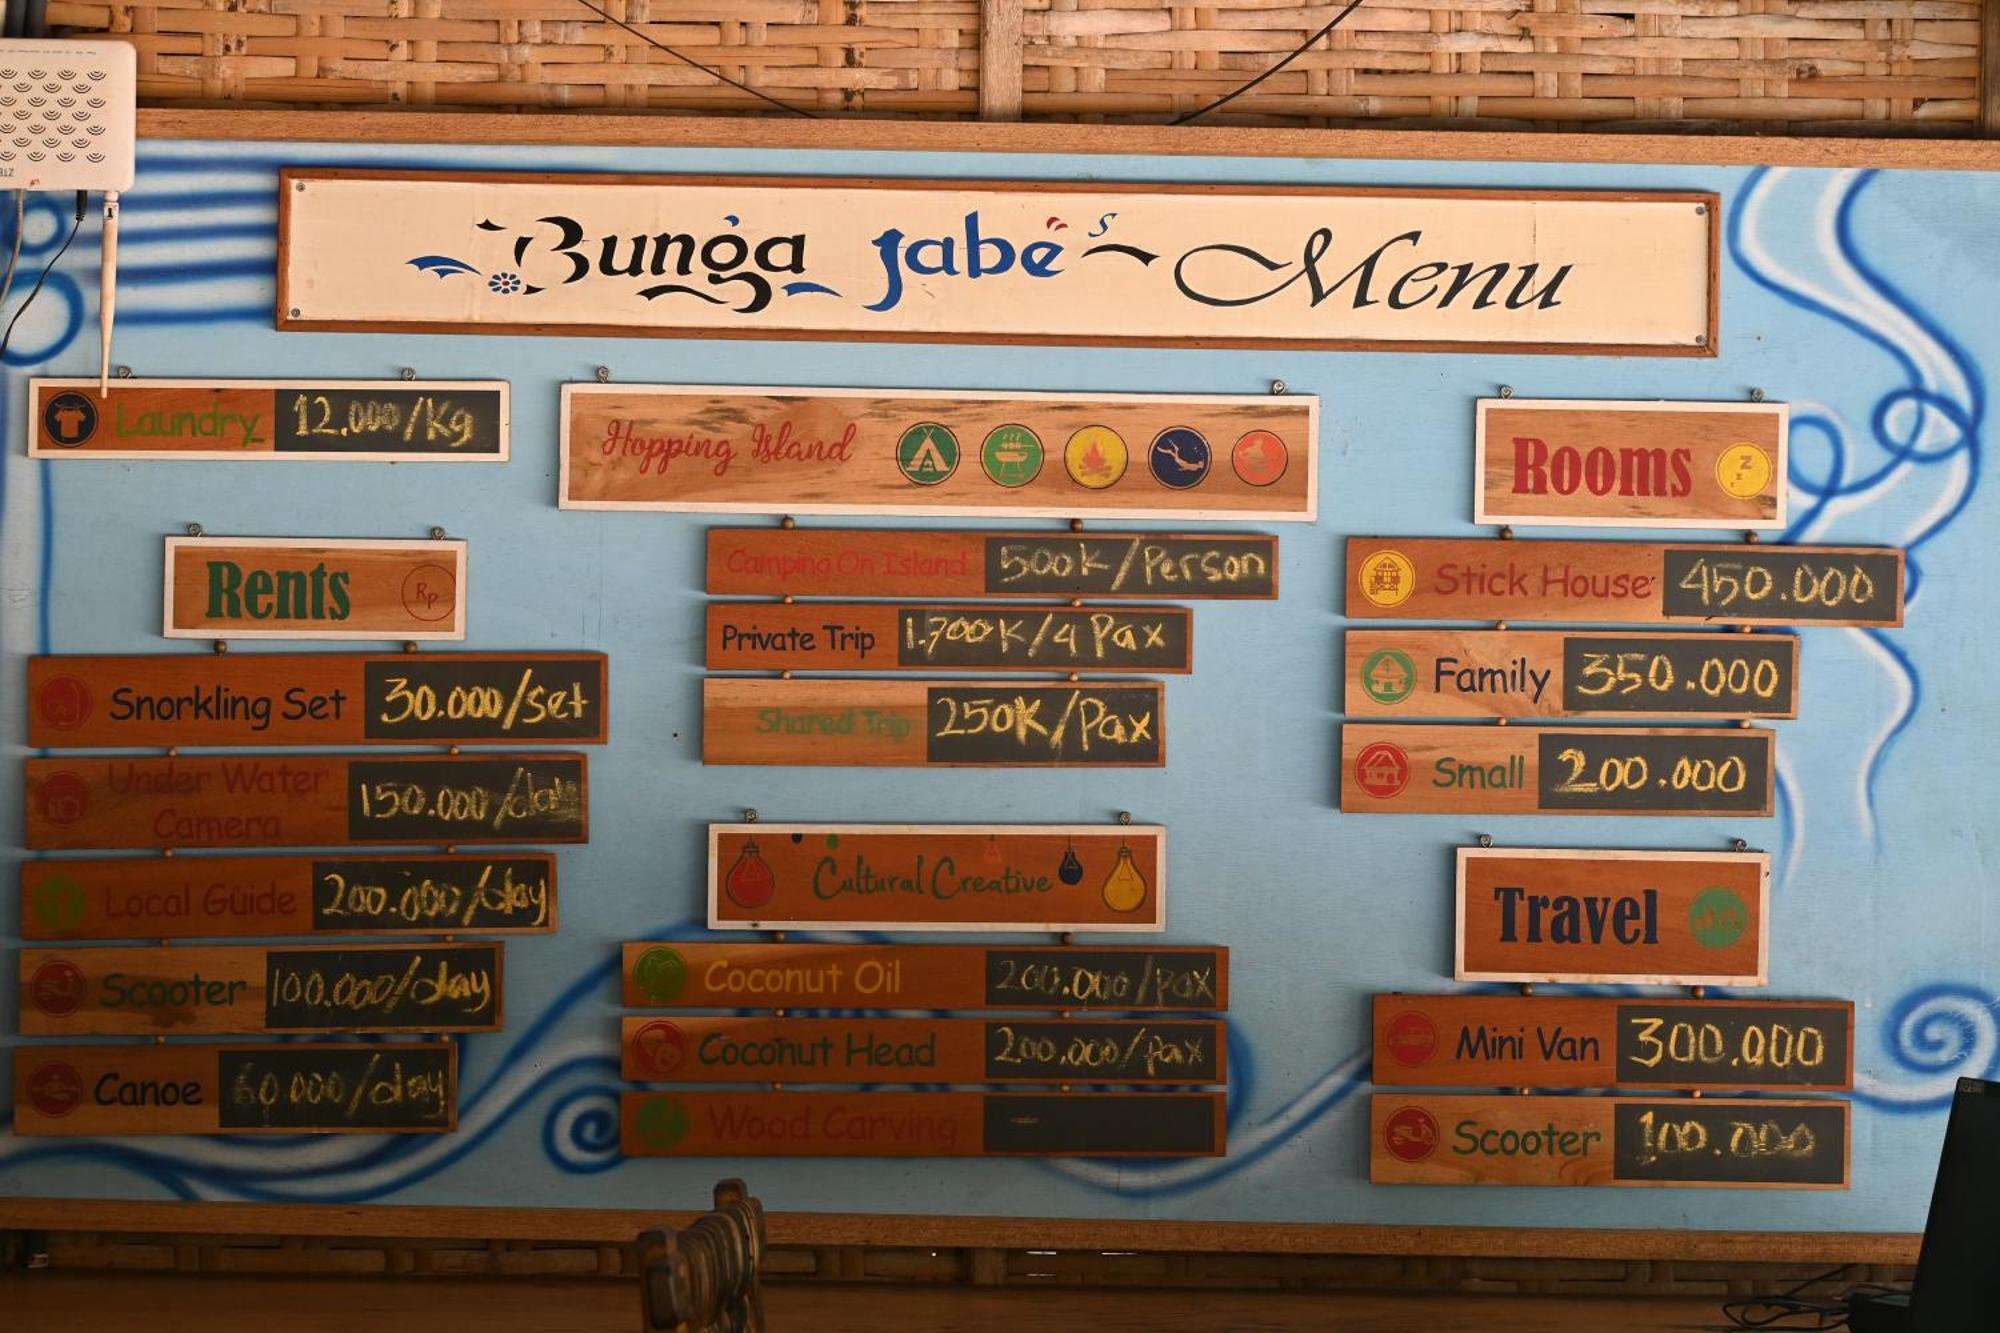 Bunga Jabe's Menu
Laundry 12.000/Kg
Rents Rp
Snorkling Set 30.000/set
Under Water
Camera
150.000/day
Local Guide 200.000/day
Scooter 100.000/day
Canoe 60.000/day
Hopping Island
Camping On Island 500K/Person
Private Trip 1.700K/4 Pax
Shared Trip 250K/Pax
Cultural Creative
Coconut Oil 200.000/pax
Coconut Head 200.000/pax
Wood Carving -
Rooms
Stick House 450.000
Family 350.000
Small 200.000
Travel
Mini Van 300.000
Scooter 100.000
ZTE